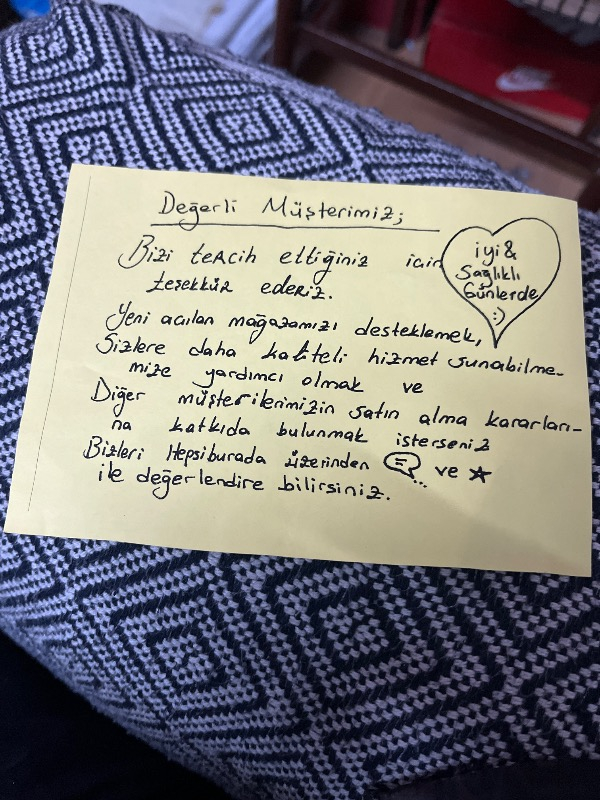 Değerli Müşterimiz;
Bizi tercih ettiğiniz için
teşekkür ederiz.
iyi &
Sağlıklı
Günlerde
:)
Yeni açılan mağazamızı desteklemek,
Sizlere daha kaliteli hizmet sunabilme-
mize yardımcı olmak ve
Diğer müşterilerimizin satın alma kararları-
na katkıda bulunmak isterseniz
Bizleri Hepsiburada üzerinden 💬 ve ★
ile değerlendire bilirsiniz.